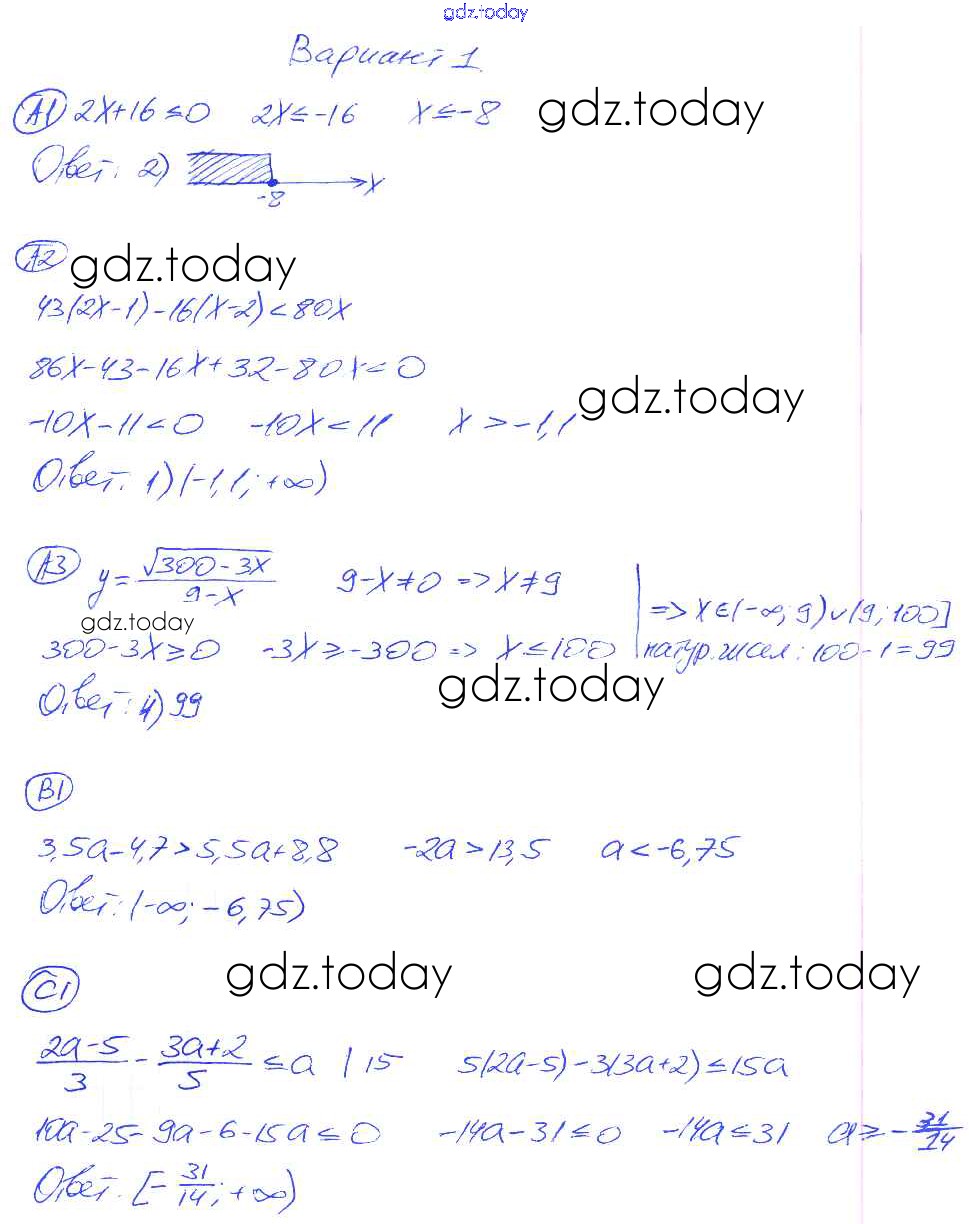 gdz.today
Вариант 1
А1 2x+16≤0 2x≤-16 x≤-8 gdz.today
Ответ: 2) -8 x
А2 gdz.today
43(2x-1)-16(x-2)<80x
86x-43-16x+32-80x<0
gdz.today
-10x-11<0 -10x<11 x>-1,1
Ответ: 1) (-1,1; +∞)
А3 y=√(300-3x)/(9-x) 9-x≠0 => x≠9 => x∈(-∞; 9)∪(9; 100]
gdz.today
300-3x≥0 -3x≥-300 => x≤100 натур. чисел: 100-1=99
gdz.today
Ответ: 4) 99
В1
3,5a-4,7>5,5a+8,8 -2a>13,5 a<-6,75
Ответ: (-∞; -6,75)
gdz.today gdz.today
С1
(2a-5)/3 - (3a+2)/5 ≤ a | 15 5(2a-5)-3(3a+2)≤15a
10a-25-9a-6-15a≤0 -14a-31≤0 -14a≤31 a≥-31/14
Ответ: [-31/14; +∞)